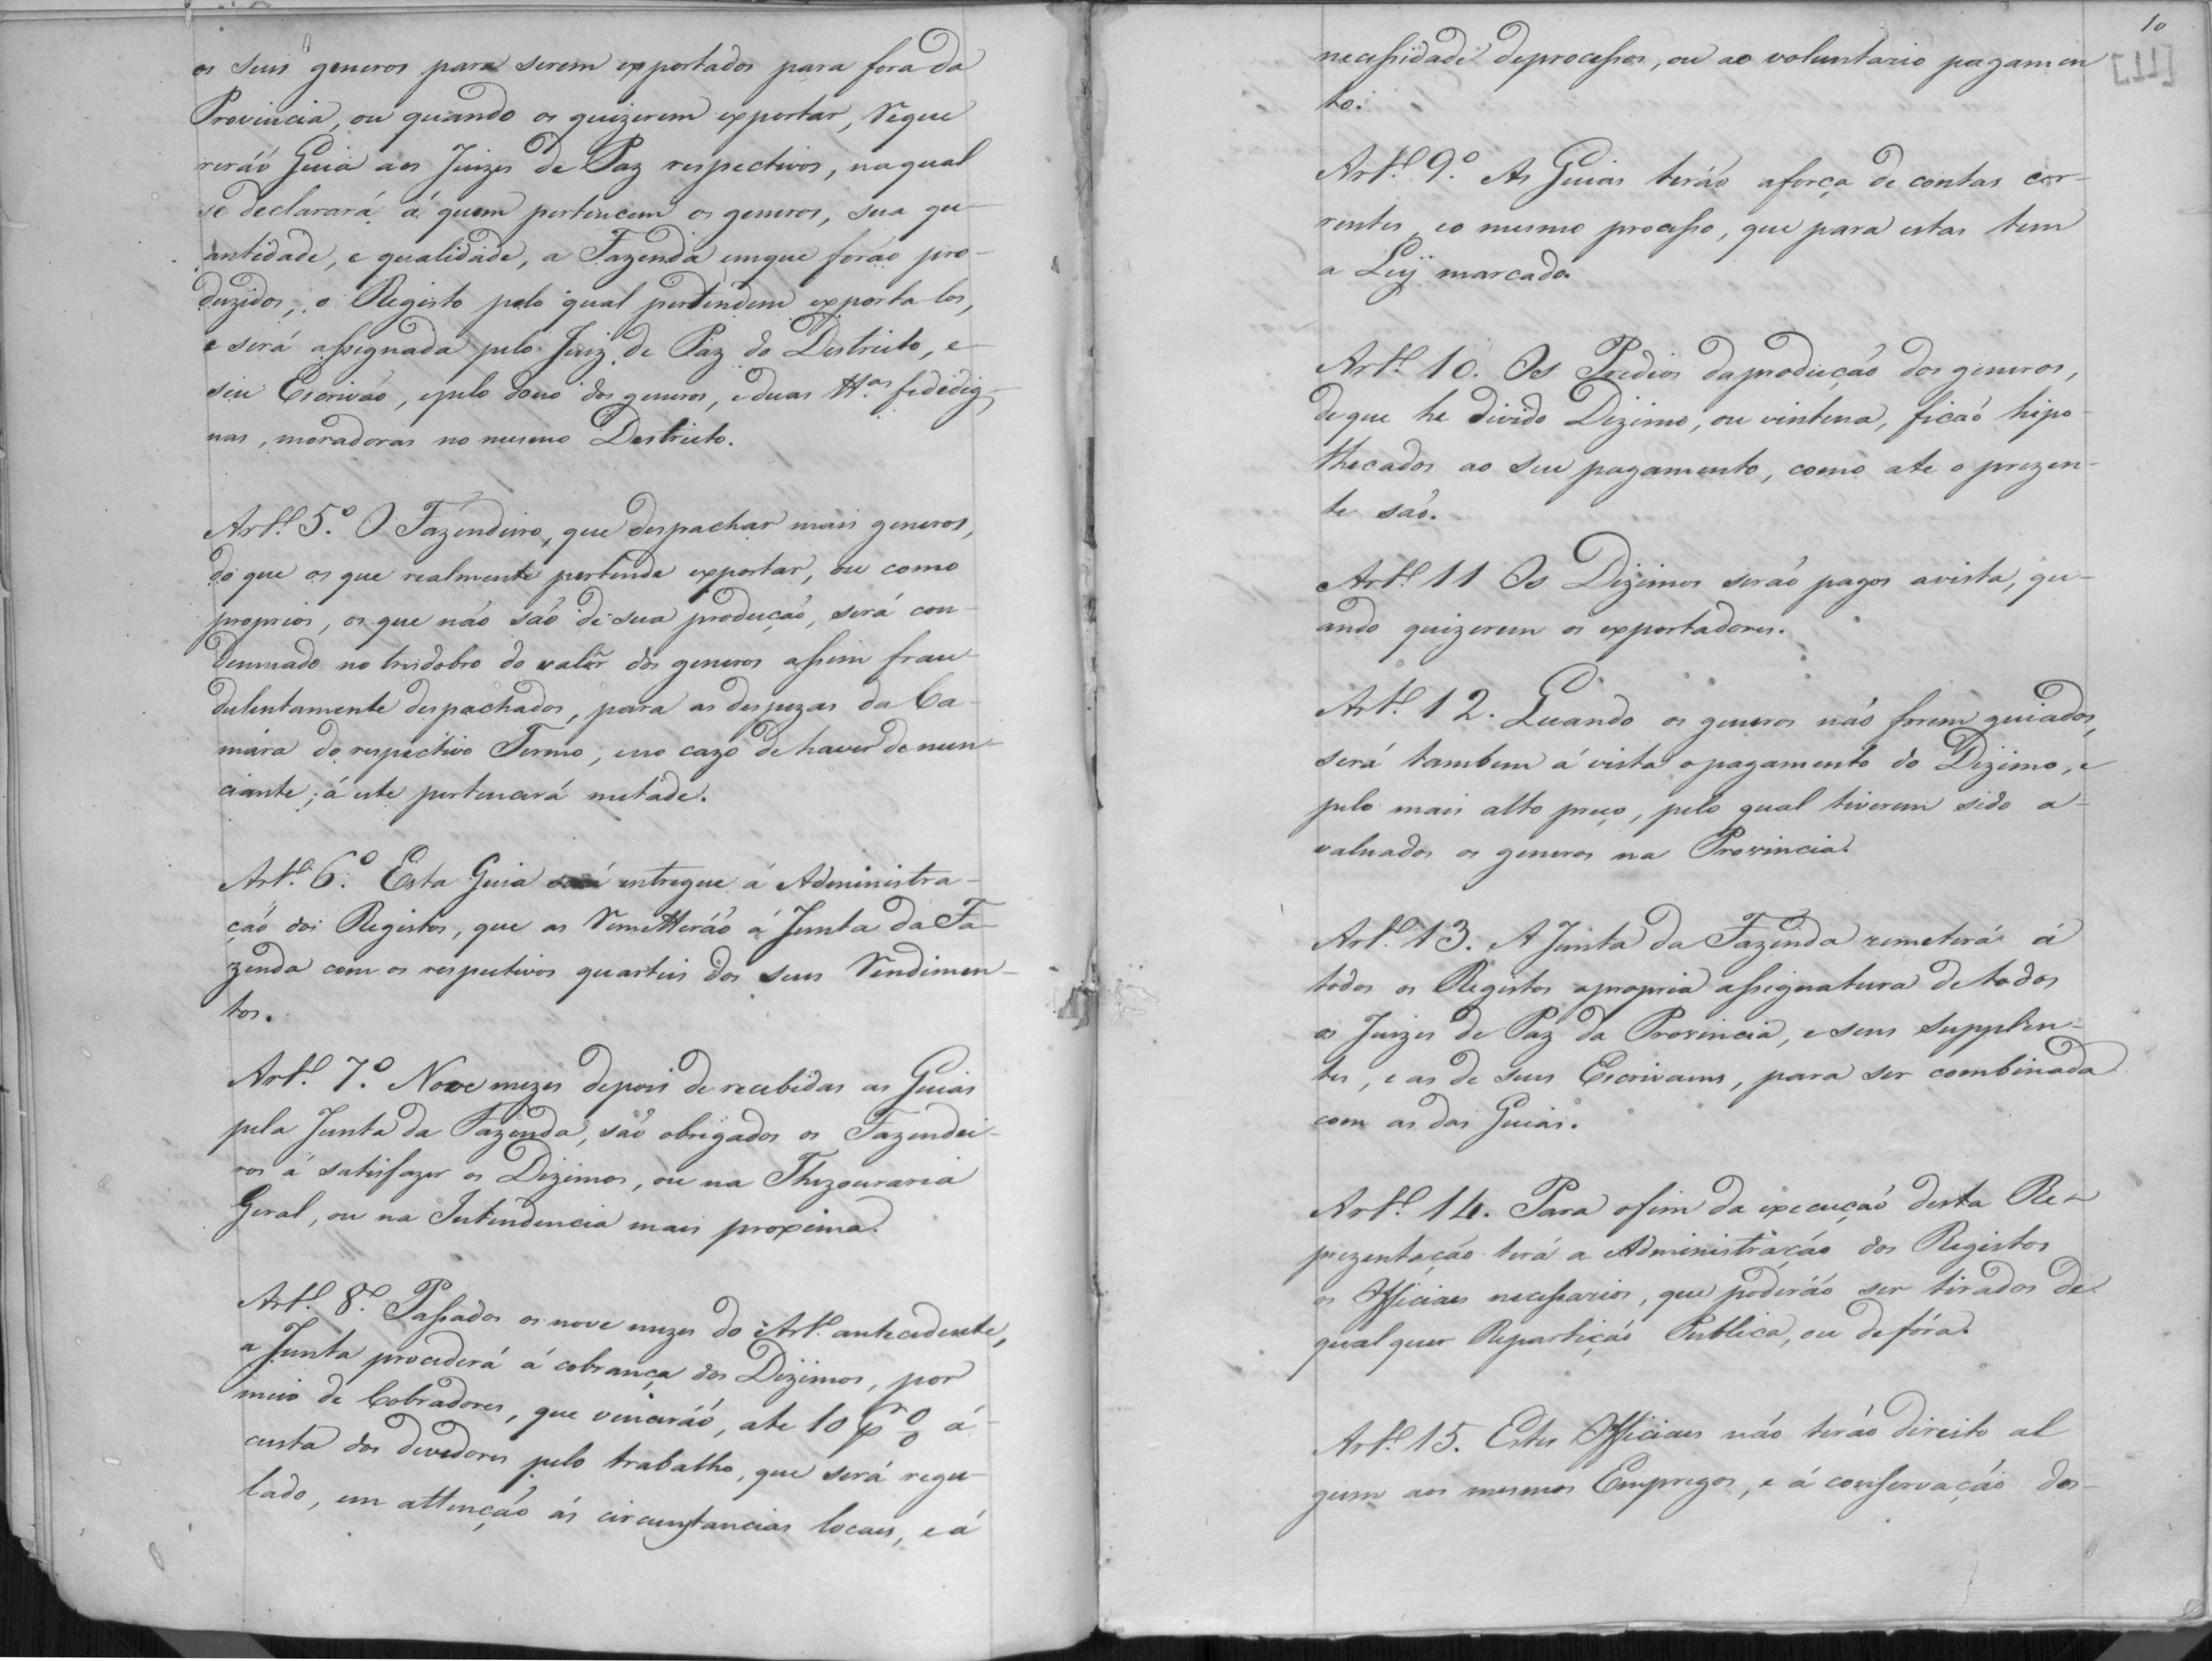 os seus generos para serem exportados para fora da
Provincia, ou quando os quizerem exportar, reque
reráõ Guia aos Juizes de Paz respectivos, na qual
se declarará á quem pertencem os generos, sua qu-
antidade, e qualidade, a Fazenda em que foráo pro-
duzidos, o Registo pelo qual pertendem exporta-los,
e será assignada pelo Juiz de Paz do Destricto, e
seu Escrivão, e pelo dono dos generos, e duas tt.as fidedig-
nas, moradoras no mesmo Destricto.
Art.º 5.º O Fazendeiro, que despachar mais generos,
do que os que realmente pertende exportar, ou como
proprios, os que náo sáo de sua produçáo, será con-
demnado no tresdobro do valor dos generos assim frau-
dulentamente despachados, para as despezas da Ca-
mara do respectivo Termo, e no cazo de haver denun-
ciante, á este pertencerá metade.
Art.º 6.º Esta Guia será entregue á Administra-
çáo dos Registos, que as remetteráõ á Junta da Fa-
zenda com os respectivos quarteis dos seus rendimen-
tos.
Art.º 7.º Nove mezes depois de recebidas as Guias
pela Junta da Fazenda, sáo obrigados os Fazendei-
ros á satisfazer os Dizimos, ou na Thezouraria
Geral, ou na Intendencia mais proxima.
Art.º 8.º Passados os nove mezes do Art.º antecedente,
a Junta procederá á cobrança dos Dizimos, por
meio de Cobradores, que venceráõ, ate 10 pr % á
custa dos devedores pelo trabalho, que será regu-
lado, em attençáo ás circunstancias locaes, e á
10
[11]
necessidade de processos, ou ao voluntario pagamen
to.
Art.º 9.º As Guias teráõ a força de contas cor-
rentes, e o mesmo processo, que para estas tem
a Leÿ marcado.
Art.º 10. Os Predios da produçáo dos generos,
de que he divido Dizimo, ou vintena, ficáo hipo-
thecados ao seu pagamento, como ate o prezen-
te sáo.
Art.º 11 Os Dizimos seráõ pagos a vista, qu-
ando quizerem os exportadores.
Art.º 12. Quando os generos náo forem guiados,
será tambem á vista o pagamento do Dizimo, e
pelo mais alto preço, pelo qual tiverem sido a-
valuados os generos na Provincia.
Art.º 13. A Junta da Fazenda remeterá á
todos os Registos a propria assignatura de todos
os Juizes de Paz da Provincia, e seus Supplen-
tes, e as de seus Escrivaens, para ser combinada
com as das Guias.
Art.º 14. Para o fim da execuçáo desta Re-
prezentaçáo terá a Administraçáo dos Registos
os Officiaes necessarios, que poderáõ ser tirados de
qualquer Repartiçáo Publica, ou de fóra.
Art.º 15. Estes Officiaes náo teráõ direito al
gum aos mesmos Empregos, e á conservaçáo dos-